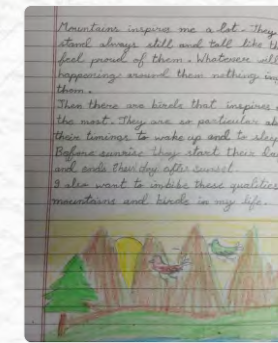 Mountains inspires me a lot. They
stand always still and tall like th
feel proud of them. Whatever will
happening around them nothing in
them.
Then there are birds that inspires
the most. They are so particular ab
their timings to wake up and to sleep
Before sunrise they start their
and ends their day after sunset.
I also want to imbibe these qualities
mountains and birds in my life.